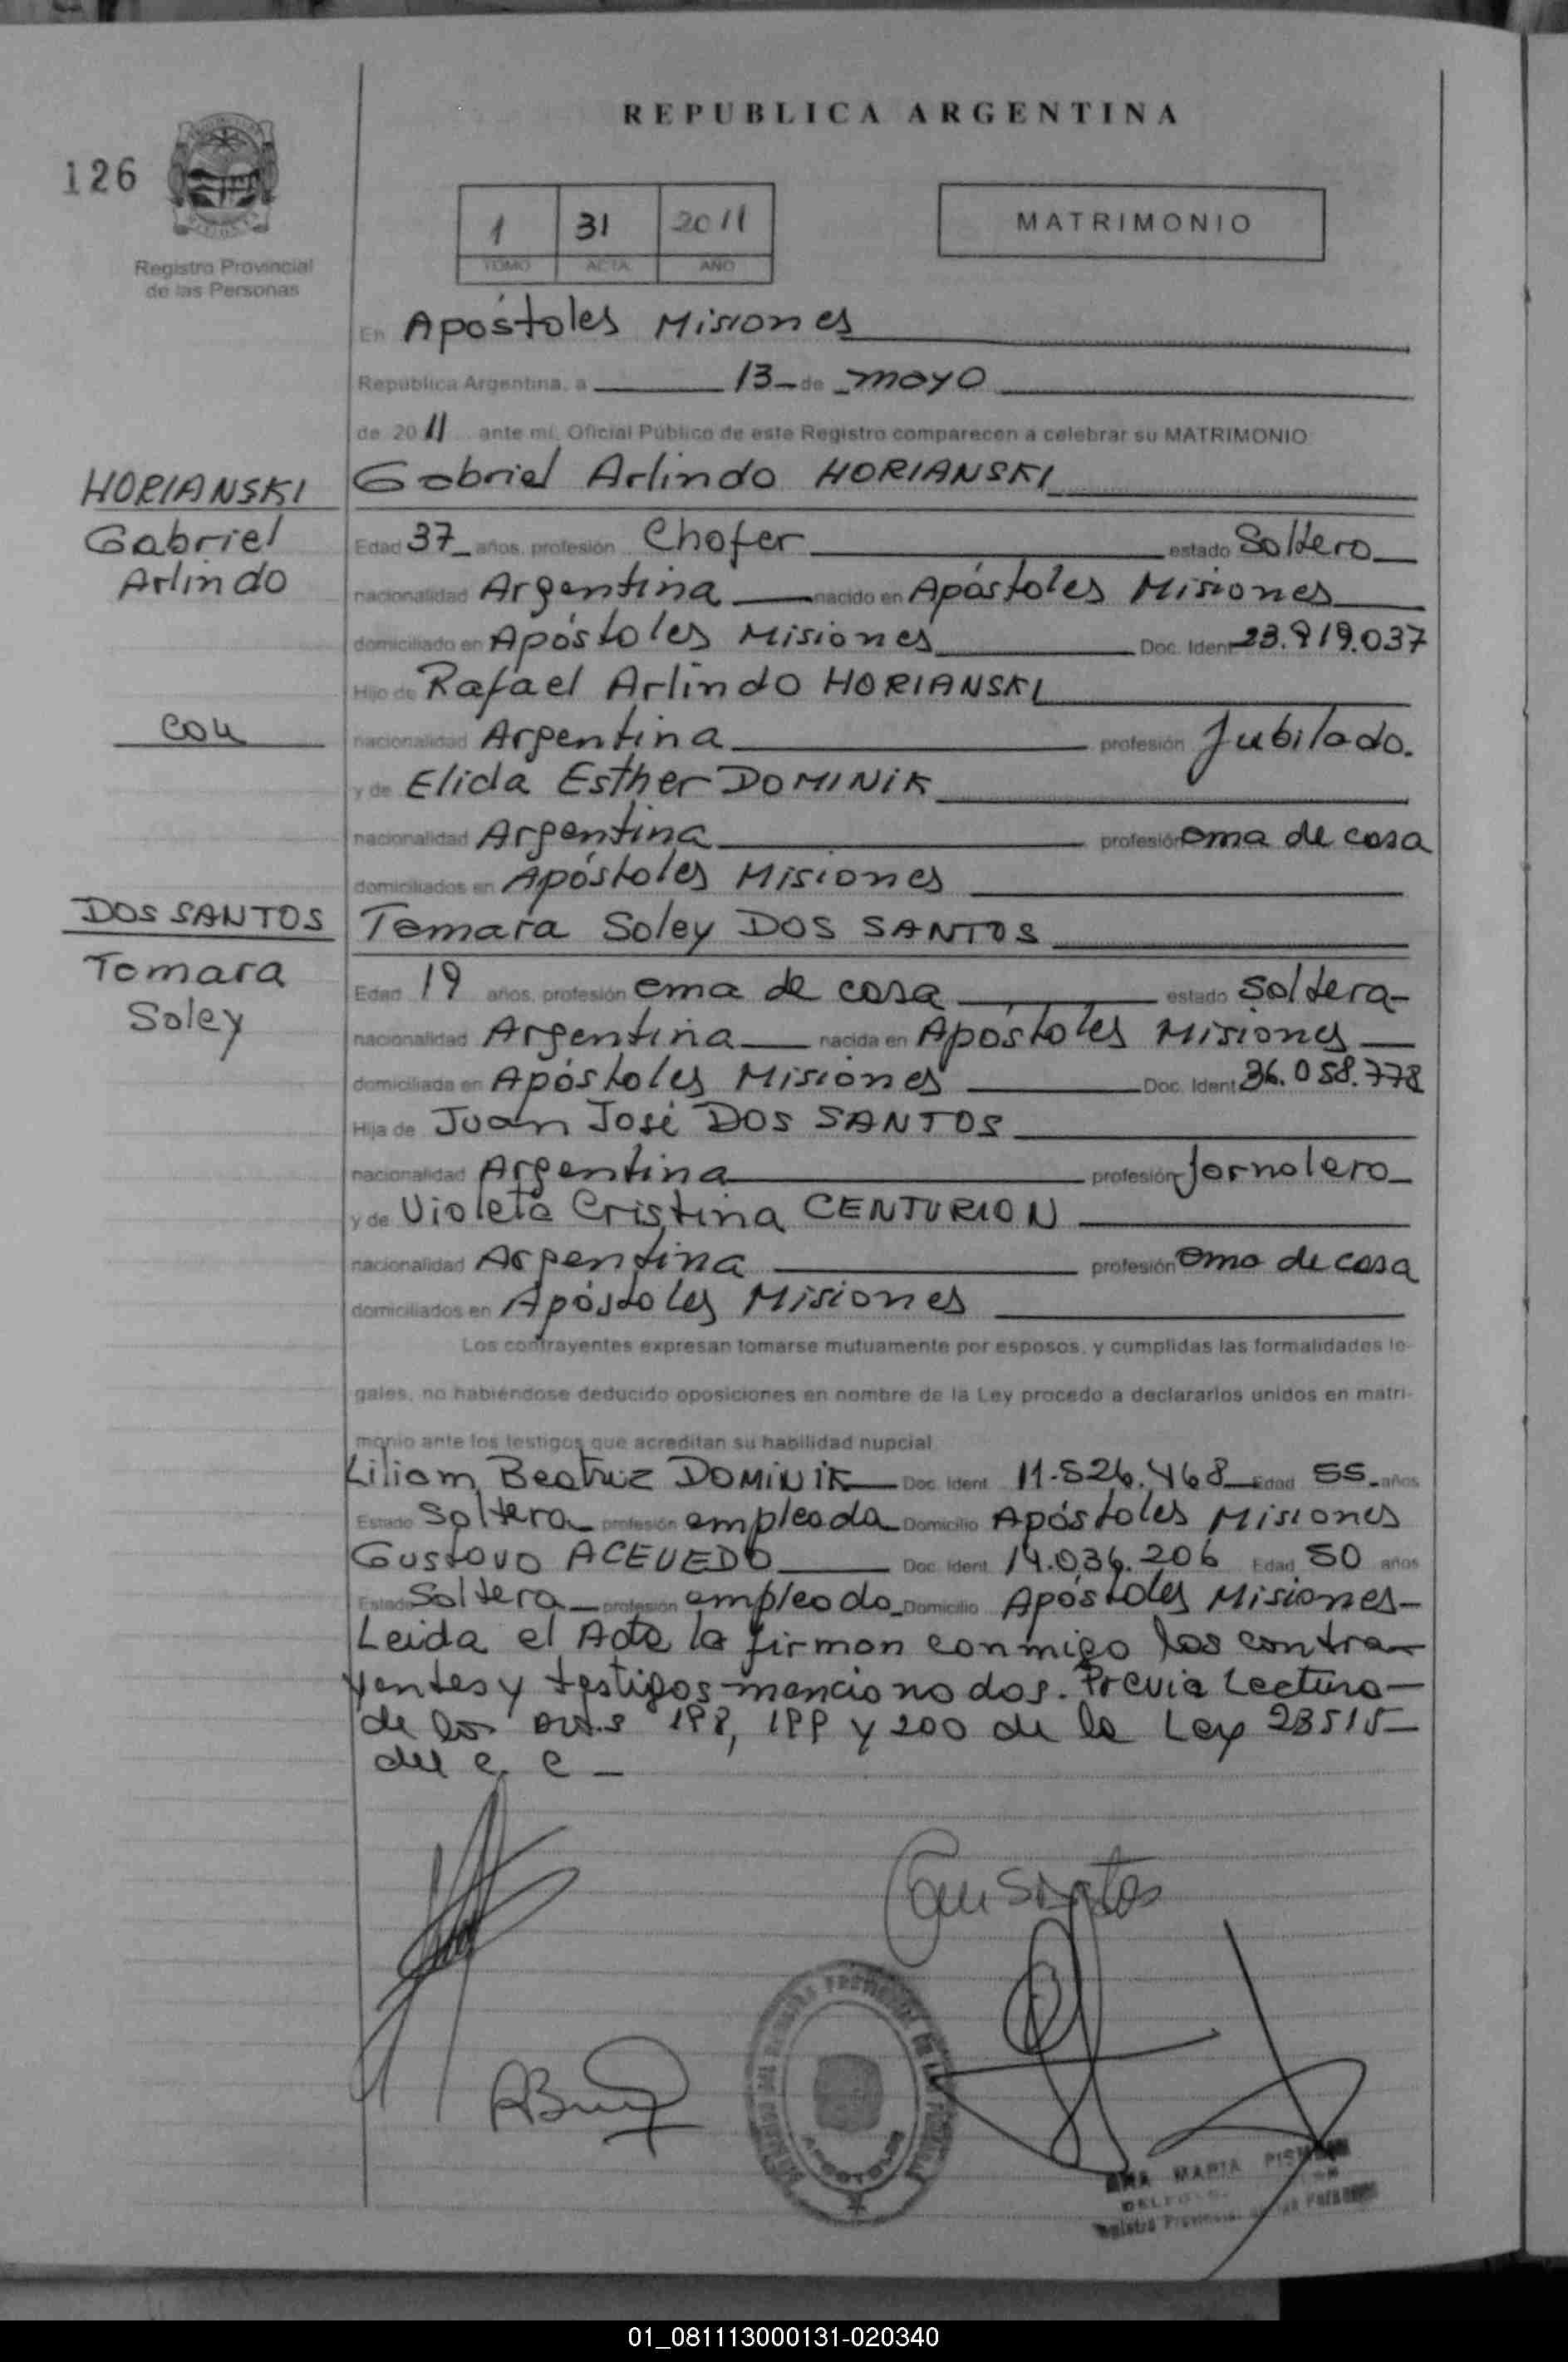 REPUBLICA ARGENTINA
126
1 31 2011
TOMO ACTA AÑO
MATRIMONIO
Registro Provincial
de las Personas
En Apóstoles Misiones
República Argentina, a 13 de mayo
de 2011 ante mí, Oficial Público de este Registro comparecen a celebrar su MATRIMONIO
HORIANSKI
Gabriel
Arlindo
Gabriel Arlindo HORIANSKI
Edad 37 años, profesión Chofer estado Soltero
nacionalidad Argentina nacido en Apóstoles Misiones
domiciliado en Apóstoles Misiones Doc. Ident 23.919.037
Hijo de Rafael Arlindo HORIANSKI
con
nacionalidad Argentina profesión Jubilado.
y de Elida Esther DOMINIK
nacionalidad Argentina profesión ama de casa
domiciliados en Apóstoles Misiones
DOS SANTOS
Tamara
Soley
Tamara Soley DOS SANTOS
Edad 19 años, profesión ama de casa estado Soltera
nacionalidad Argentina nacida en Apóstoles Misiones
domiciliada en Apóstoles Misiones Doc. Ident 36.058.778
Hija de Juan José DOS SANTOS
nacionalidad Argentina profesión Jornalero
y de Violeta Cristina CENTURION
nacionalidad Argentina profesión ama de casa
domiciliados en Apóstoles Misiones
Los contrayentes expresan tomarse mutuamente por esposos, y cumplidas las formalidades le-
gales, no habiéndose deducido oposiciones en nombre de la Ley procedo a declararlos unidos en matri-
monio ante los testigos que acreditan su habilidad nupcial
Liliam Beatriz DOMINIK Doc. Ident. 11.526.468 Edad 55 años
Estado Soltera profesión empleada Domicilio Apóstoles Misiones
Gustavo ACEVEDO Doc. Ident. 14.036.206 Edad 50 años
Estado Soltera profesión empleado Domicilio Apóstoles Misiones
Leida el Acta la firman conmigo los contra-
yentes y testigos mencionados. Previa Lectura
de los arts 198, 199 y 200 de la Ley 23515
del C. C
APOSTOLES
MARIA
Registro Provincial de las Personas
01_081113000131-020340